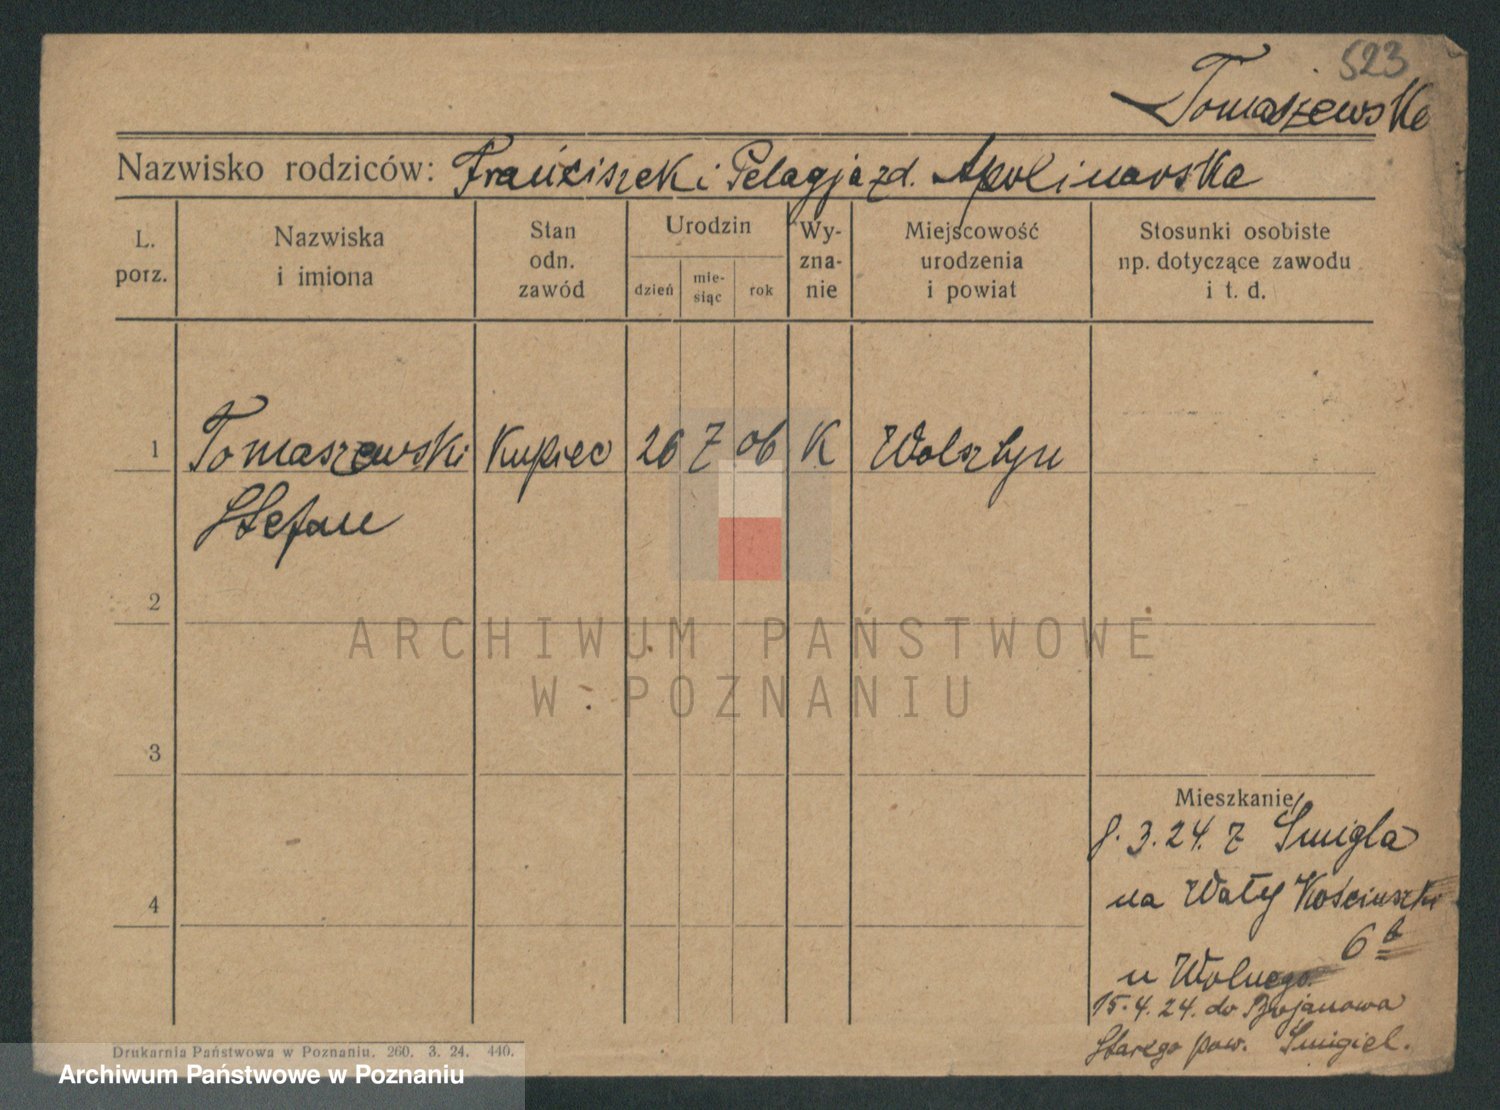 523
Tomaszewski
Nazwisko rodziców: Franciszek i Pelagja zd. Apolinarska
L. porz.
Nazwiska i imiona
Stan odn. zawód
Urodzin
dzień
mie-siąc
rok
Wy-zna-nie
Miejscowość urodzenia i powiat
Stosunki osobiste np. dotyczące zawodu i t. d.
1 Tomaszewski Kupiec 26 7 06 K Wolsztyn
Stefan
2
3
4
Mieszkanie
8.3.24. z Śmigla
na Wały Kościuszki
6b
u Wolnego
15.4.24. do Bojanowa
Starego pow. Śmigiel.
Drukarnia Państwowa w Poznaniu. 260. 3. 24. 440.
ARCHIWUM PAŃSTWOWE
W POZNANIU
Archiwum Państwowe w Poznaniu